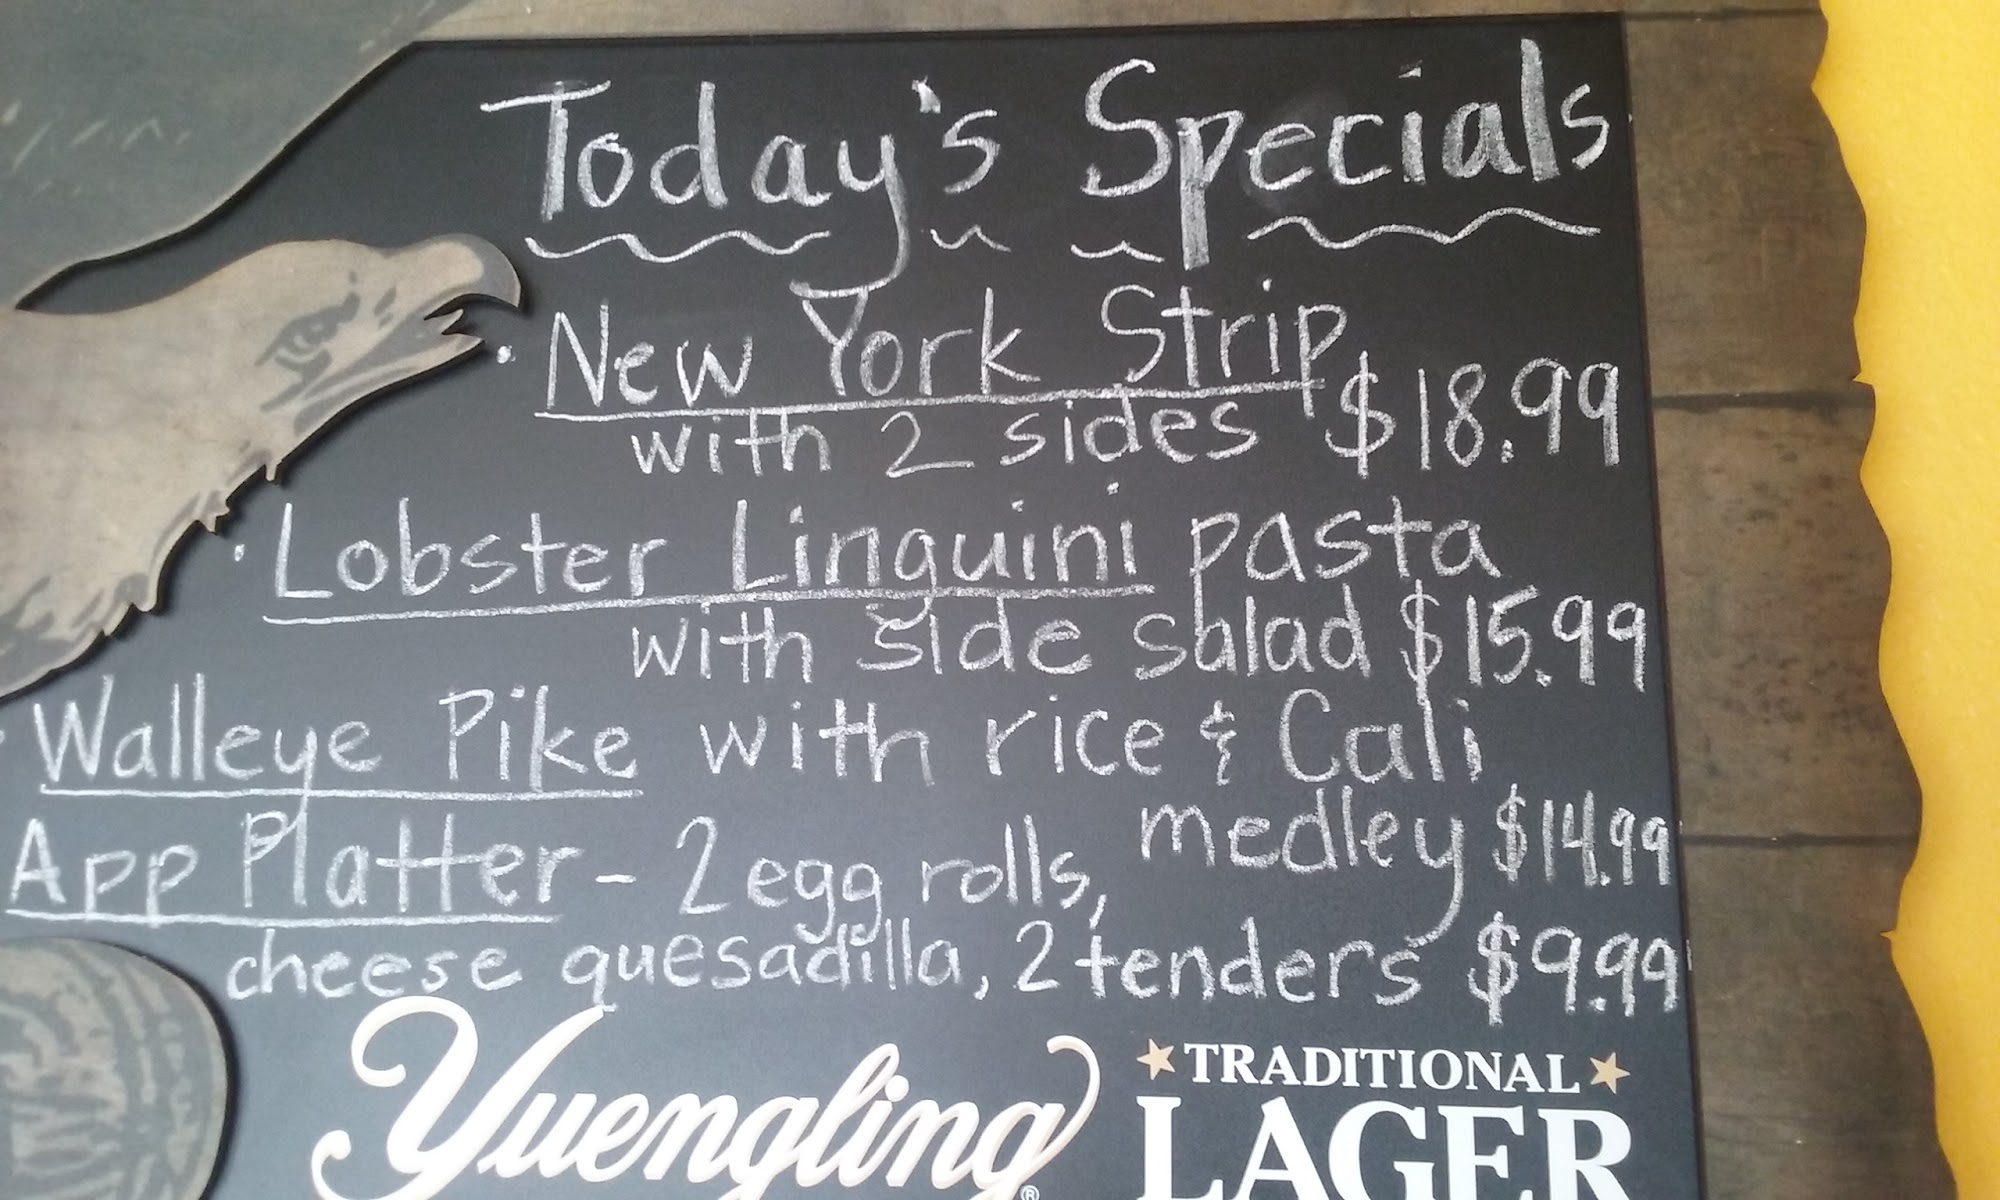 Today's Specials
· New York Strip
with 2 sides $18.99
· Lobster Linguini pasta
with side salad $15.99
· Walleye Pike with rice & Cali
medley $14.99
App Platter - 2 egg rolls,
cheese quesadilla, 2 tenders $9.99
Yuengling®
TRADITIONAL
LAGER